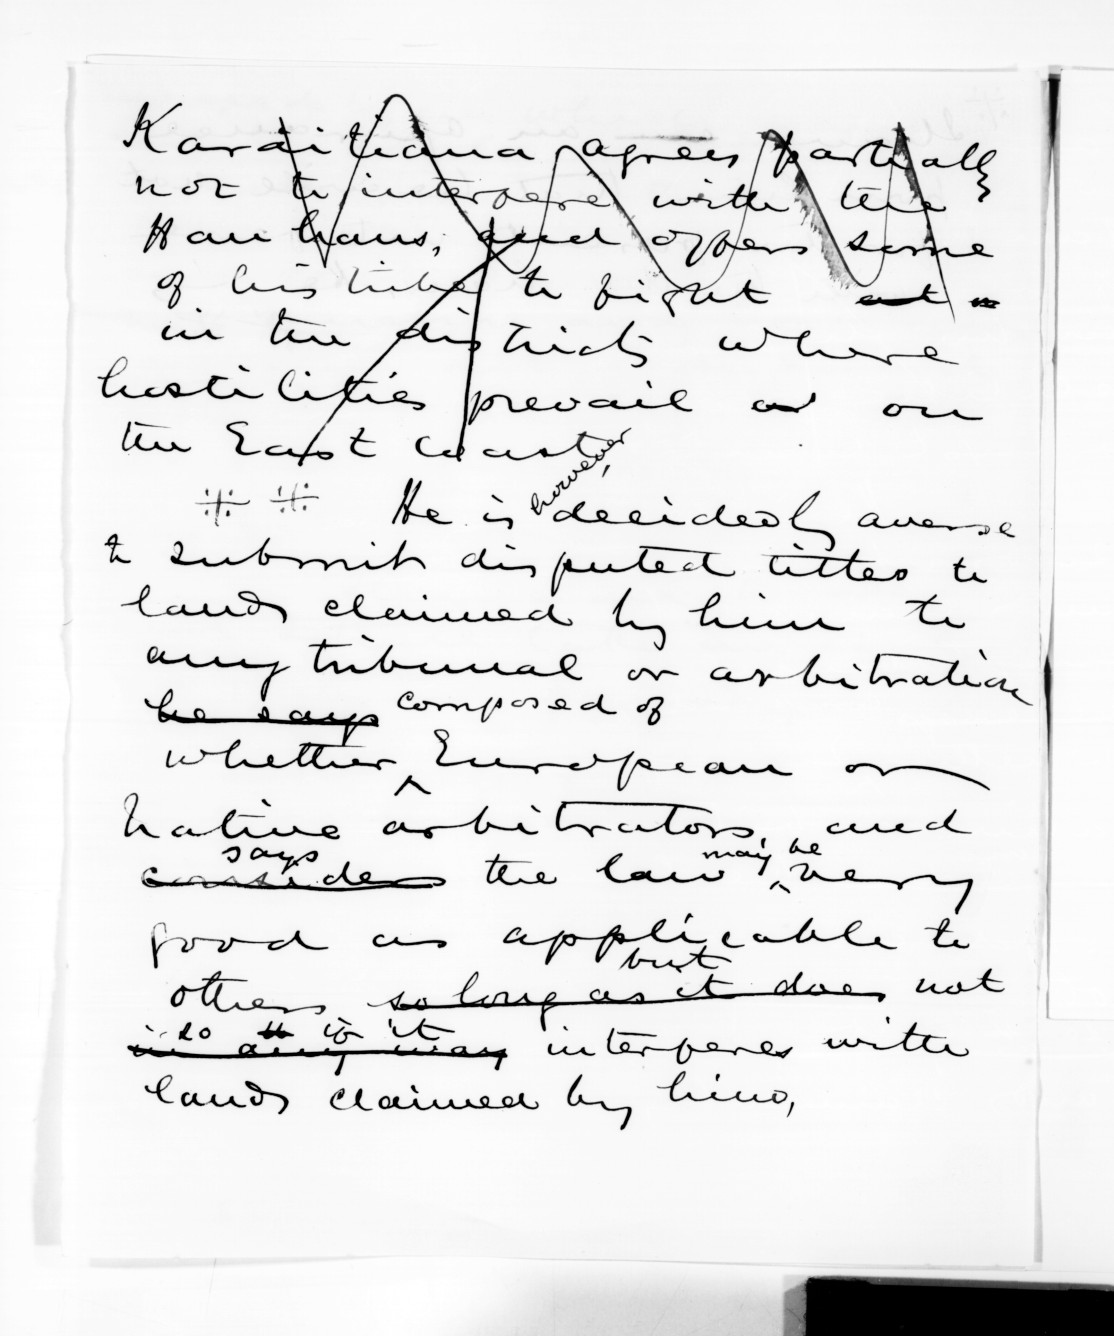 Karaitiana agrees partially
not to interfere with the
Hau haus, and offers some
of his tribe to fight out in
in the districts where
hostilities prevail or on
the East Coast,
however
He is decidedly averse
to submit disputed titles to
lands claimed by him to
any tribunal or arbitration
he says composed of
whether European or
Native arbitrators, and
says may be
considers the law very
good as applicable to
but
others so long as it does not
so if it
in any way interferes with
lands claimed by him,